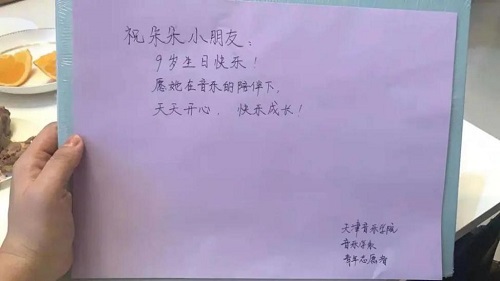 祝朵朵小朋友：
9岁生日快乐！
愿她在音乐的陪伴下，
天天开心，快乐成长！
天津音乐学院
音乐学系
青年志愿者